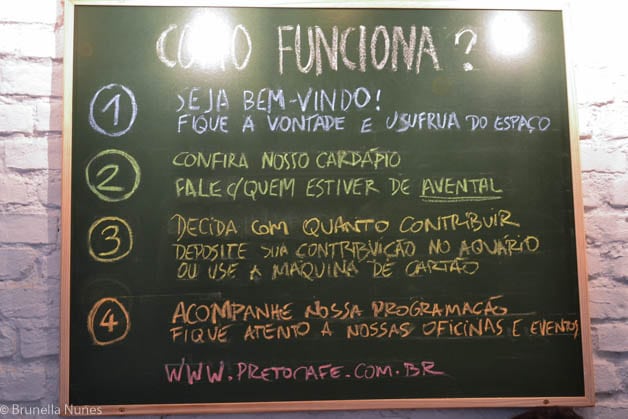 COMO FUNCIONA?
1 SEJA BEM-VINDO!
FIQUE À VONTADE E USUFRUA DO ESPAÇO
2 CONFIRA NOSSO CARDÁPIO
FALE C/QUEM ESTIVER DE AVENTAL
3 DECIDA COM QUANTO CONTRIBUIR
DEPOSITE SUA CONTRIBUIÇÃO NO AQUÁRIO
OU USE A MÁQUINA DE CARTÃO
4 ACOMPANHE NOSSA PROGRAMAÇÃO
FIQUE ATENTO A NOSSAS OFICINAS E EVENTOS
WWW.PRETOCAFE.COM.BR
© Brunella Nunes